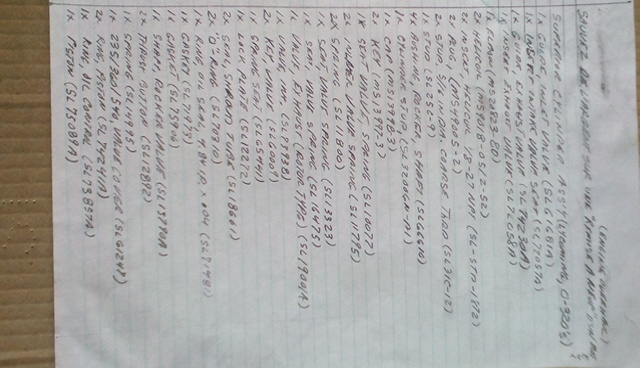 (ENGINE OVERHAUL)
SAUVEZ DE L'ARGENT SUR UNE "REMISE A NEUF"
SUPERIOR CYLINDER ASS'Y (LYCOMING, O-320'S)
1x GUIDE, INLET VALUE (SL61681A)
1x INSERT INTAKE VALUE SEAT (SL72057A)
1x GUIDE, EXHAUST VALUE (SL74230A)
1x INSERT EXHAUST VALUE (SL72058A)
1x (MS20823-8D)
2x HELICOIL (MS9018-0512-52)
2x INSERT, HELICOIL 1/8-27 NPT (SL-STD-1872)
2x PLUG, (MS49005-2)
2x STUD, 5/16 IN DIA. COARSE THRD (SL31C-12)
1x STUD (SL25C-9)
4x BUSHING, ROCKER, SHAFT (SL66610)
1x CYLINDER STUD,
1x CAP (MS13998-3)
2x KEY (MS13997-3)
1x SEAT VALVE, SPRING (SL10077)
2x INNER VALUE SPRING (SL11795)
2x SPRING (SL11800)
1x SEAT, VALUE SPRING (SL13323)
1x SEAT, VALUE SPRING (SL16475)
1x VALUE, EXHAUST (ROTOR TYPE) (SL19001A)
1x VALUE, INT. (SL73938)
2x KEY, VALUE (SL60009)
1x SPRING SEAT (SL65441)
1x LOCK PLATE (SL12272)
2x SEAL, SHROUD TUBE (SL18661)
2x "O"-RING (SL70310)
1x RING, OIL SEAL, 4.84 I.D. x .04 (SL71481)
1x GASKET (SL71973)
1x GASKET (SL75906)
1x SHAFT, ROCKER VALUE (SL13790A)
2x THRUST BUTTON (SL12892)
1x SPRING (SL14995)
1x 235/360/540, VALUE COVER (SL61247)
2x RING, PISTON (SL74241A)
1x RING, OIL CONTROL (SL73857A)
1x PISTON (SL75089A)